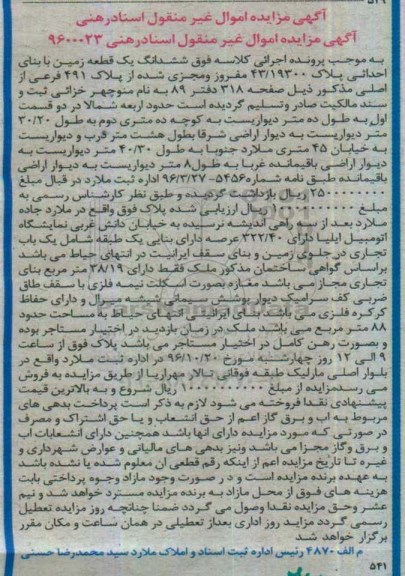 آگهی مزایده اموال غیر منقول اسنادرهنی
آگهی مزایده اموال غیر منقول اسنادرهنی ۹۶۰۰۰۲۳
به موجب پرونده اجرائی کلاسه فوق ششدانگ یک قطعه زمین با بنای
احداثی پلاک ۴۳/۱۹۳۰۰ مفروز ومجزی شده از پلاک ۴۹۱ فرعی از
اصلی مذکور ذیل صفحه ۳۱۸ دفتر ۸۹ به نام منوچهر خزائی ثبت و
سند مالکیت صادر وتسلیم گردیده است حدود اربعه شمالا در دو قسمت
اول به طول ده متر دیواریست به کوچه ده متری دوم به طول ۳۰/۲۰
متر دیواریست به دیوار اراضی شرقا بطول هشت متر قرب و دیواریست
به خیابان ۴۵ متری ملارد جنوبا به طول ۴۰/۳۰ متر دیواریست به
دیوار اراضی باقیمانده غربا به طول ۸ متر دیواریست به دیوار اراضی
باقیمانده طبق نامه شماره ۵۴۵۶-۹۶/۳/۲۷ اداره ثبت ملارد در قبال مبلغ
ریال بازداشت گردیده و طبق نظر کارشناس رسمی به
مبلغ ریال ارزیابی شده پلاک فوق واقع در ملارد جاده
ملارد بعد از سه راهی اندیشه نرسیده به خیابان دانش غربی نمایشگاه
اتومبیل ایلیا دارای ۳۲۲/۴۰ عرصه دارای بنایی یک طبقه شامل یک باب
تجاری در جلوی زمین و بنای سقف ایرانیت در انتهای حیاط می باشد
براساس گواهی ساختمان مذکور ملک فقط دارای ۳۸/۱۹ متر مربع بنای
تجاری مجاز می باشد مغازه بصورت اسکلت نیمه فلزی با سقف طاق
ضربی کف سرامیک دیوار پوشش سیمانی شیشه میرال و دارای حفاظ
کرکره فلزی می باشد بنای ایرانیت در انتهای حیاط به مساحت حدود
۸۸ متر مربع می باشد ملک در زمان بازدید در اختیار مستاجر بوده
و بصورت رهن کامل در اختیار مستاجر می باشد پلاک فوق از ساعت
۹ الی ۱۲ روز چهارشنبه مورخ ۹۶/۱۰/۲۰ در اداره ثبت ملارد واقع در
بلوار اصلی مارلیک طبقه فوقانی تالار مهرآریا از طریق مزایده به فروش
می رسد مزایده از مبلغ ریال شروع و به بالاترین قیمت
پیشنهادی نقدا فروخته می شود لازم به ذکر است پرداخت بدهی های
مربوط به آب و برق گاز اعم از حق انشعاب و یا حق اشتراک و مصرف
در صورتی که مورد مزایده دارای آنها باشد همچنین دارای انشعابات آب
و برق وگاز مجزا می باشد ونیز بدهی های مالیاتی و عوارض شهرداری و
غیره تا تاریخ مزایده اعم از اینکه رقم قطعی آن معلوم شده یا نشده باشد
به عهده برنده مزایده است و در صورت وجود مازاد وجوه پرداختی بابت
هزینه های فوق از محل مازاد به برنده مزایده مسترد خواهد شد و نیم
عشر وحق مزایده نقدا وصول می گردد ضمنا چنانچه روز مزایده تعطیل
رسمی گردد مزاید روز اداری بعداز تعطیلی در همان ساعت و مکان مقرر
برگزار خواهد شد
م الف ۴۸۷۰ رئیس اداره ثبت اسناد و املاک ملارد سید محمدرضا حسنی
۵۴۱